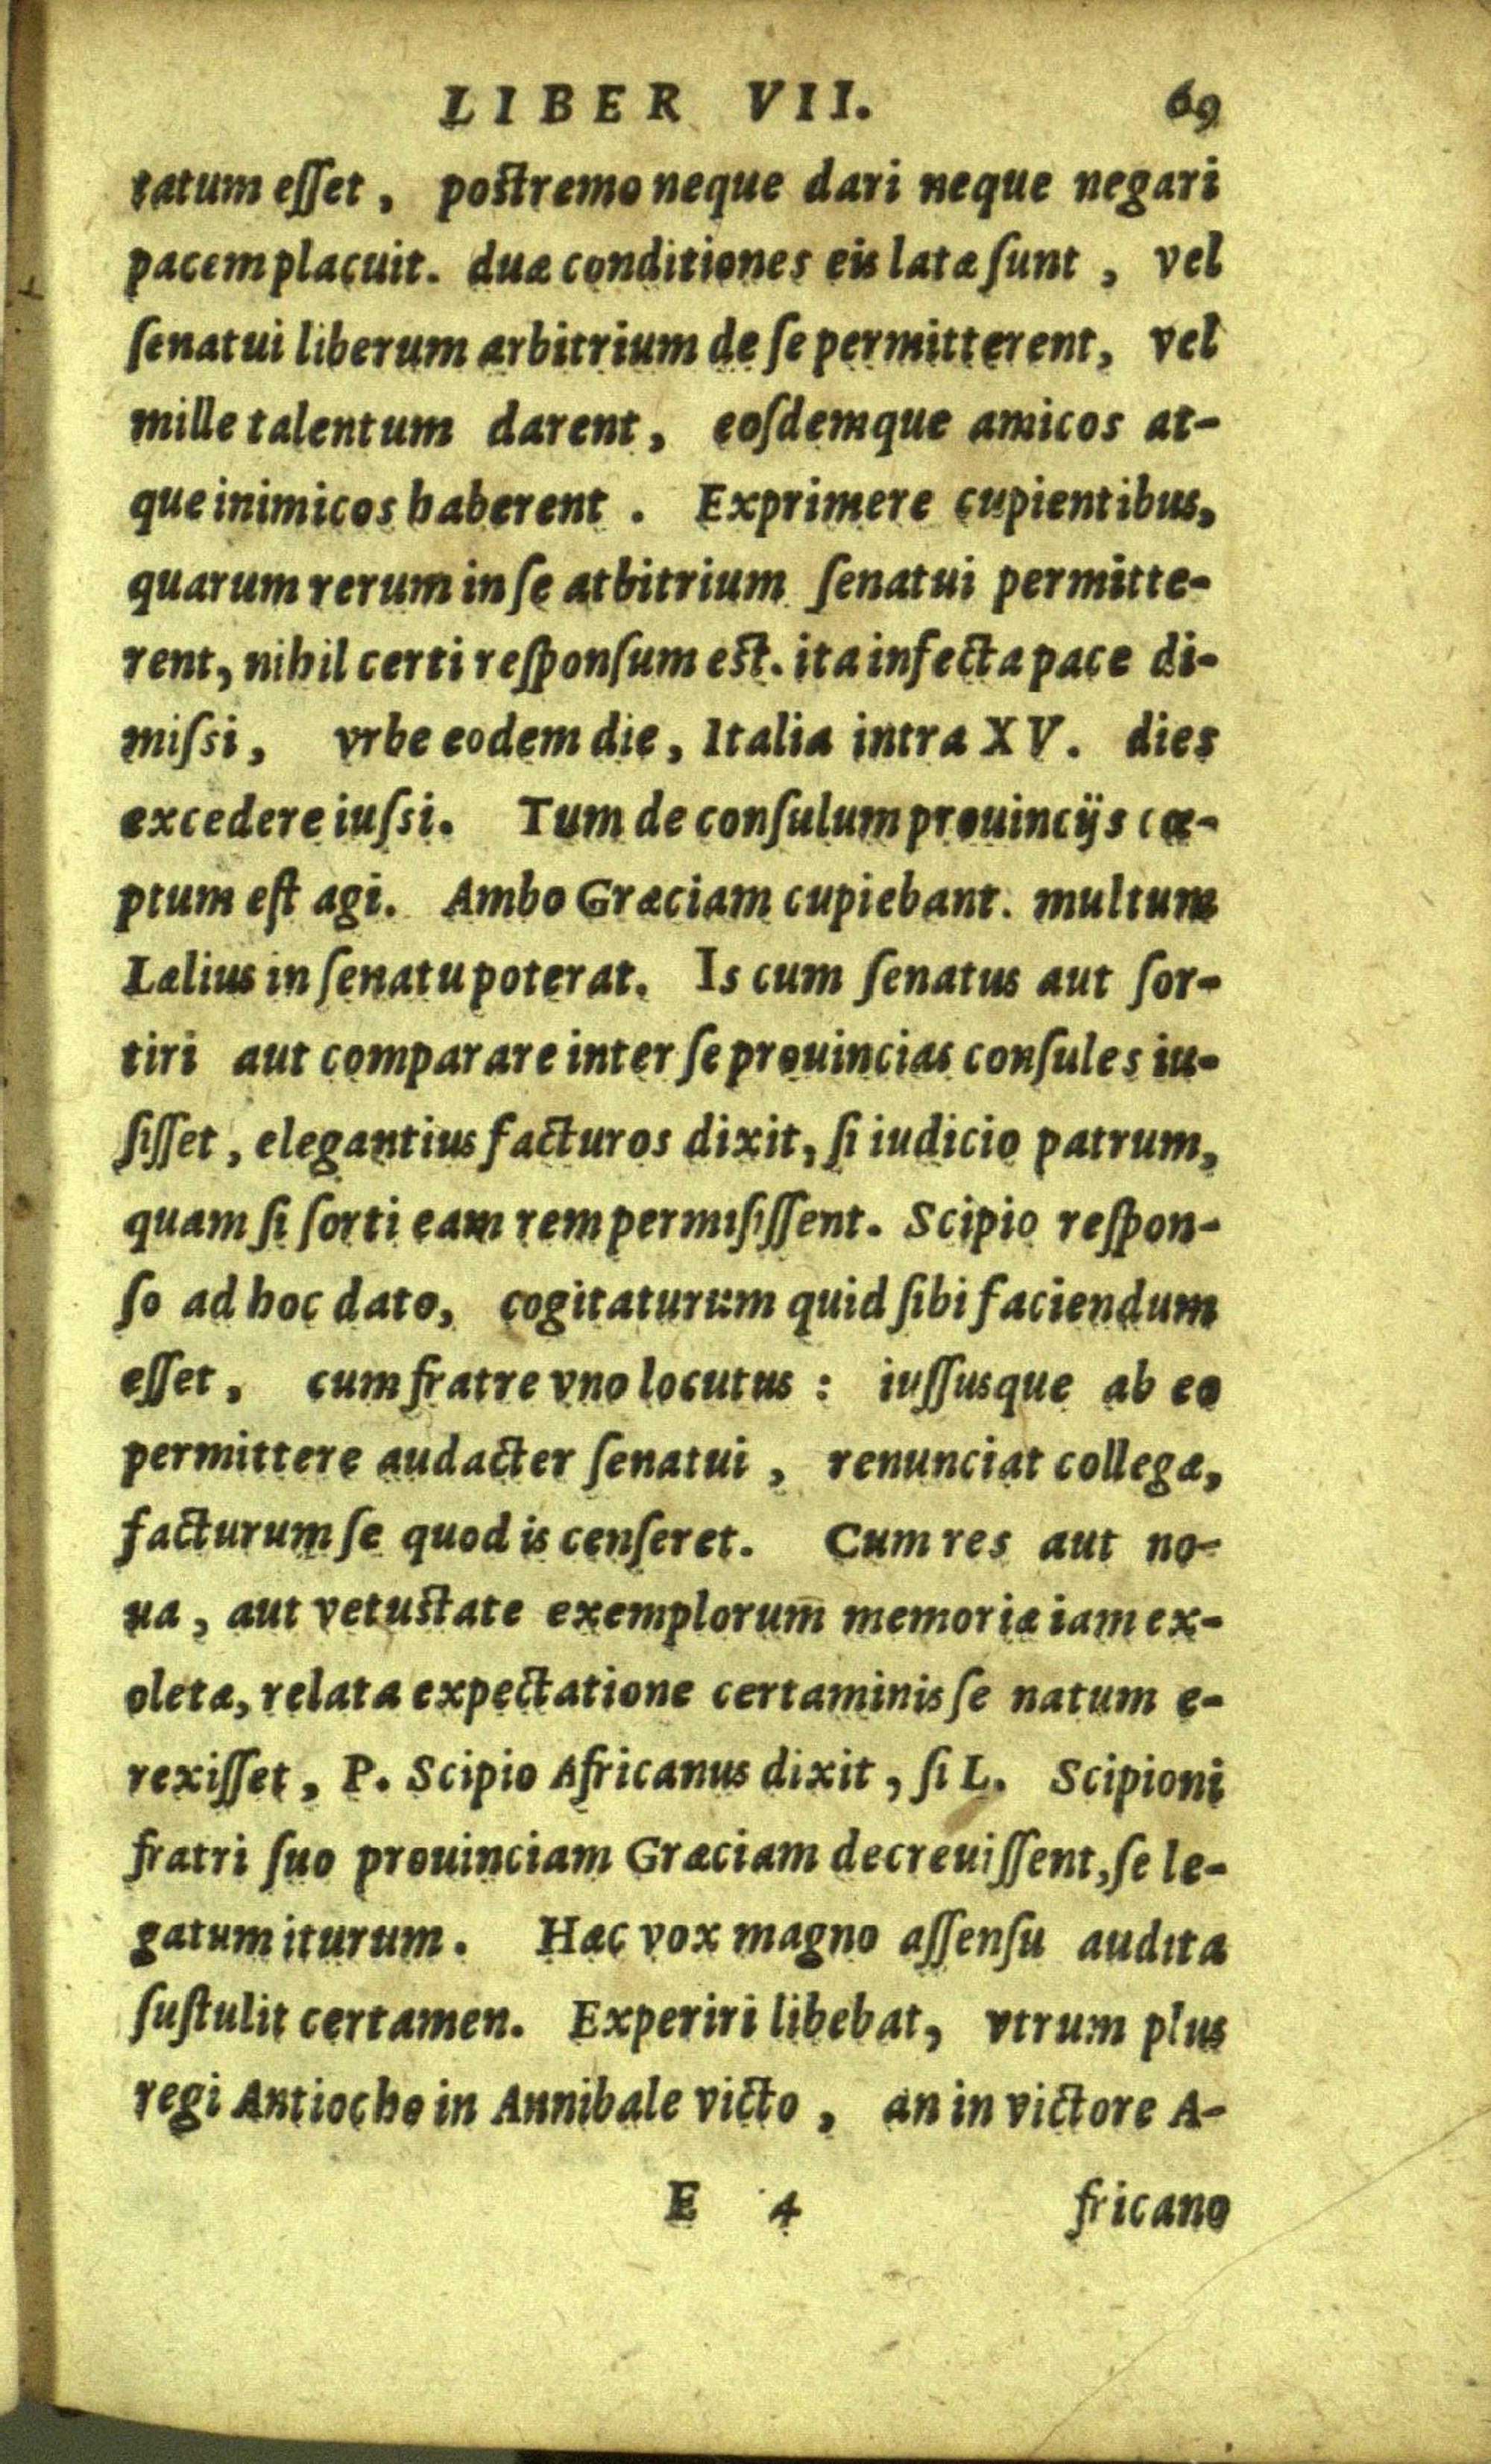 LIBER VII. 69
tatum eſſet, poſtremo neque dari neque negari
pacem placuit. duæ conditiones eis latæ ſunt, vel
ſenatui liberum arbitrium de ſe permitterent, vel
mille talentum darent, eoſdemque amicos at-
que inimicos haberent. Exprimere cupientibus,
quarum rerum in ſe atbitrium ſenatui permitte-
rent, nihil certi reſponſum eſt. ita infecta pace di-
miſsi, vrbe eodem die, Italia intra XV. dies
excedere iuſsi. Tum de conſulum prouincijs cœ-
ptum eſt agi. Ambo Græciam cupiebant. multum
Lælius in ſenatu poterat. Is cum ſenatus aut ſor-
tiri aut comparare inter ſe prouincias conſules iu-
ſiſſet, elegantius facturos dixit, ſi iudicio patrum,
quam ſi ſorti eam rem permiſiſſent. Scipio reſpon-
ſo ad hoc dato, cogitaturum quid ſibi faciendum
eſſet, cum fratre vno locutus: iuſſusque ab eo
permittere audacter ſenatui, renunciat collegæ,
facturum ſe quod is cenſeret. Cum res aut no-
ua, aut vetuſtate exemplorum memoriæ iam ex-
oletæ, relata expectatione certaminis ſe natum e-
rexiſſet, P. Scipio Africanus dixit, ſi L. Scipioni
fratri ſuo prouinciam Græciam decreuiſſent, ſe le-
gatum iturum. Hæc vox magno aſſenſu audita
ſuſtulit certamen. Experiri libebat, vtrum plus
regi Antiocho in Annibale victo, an in victore A-
E 4 fricano